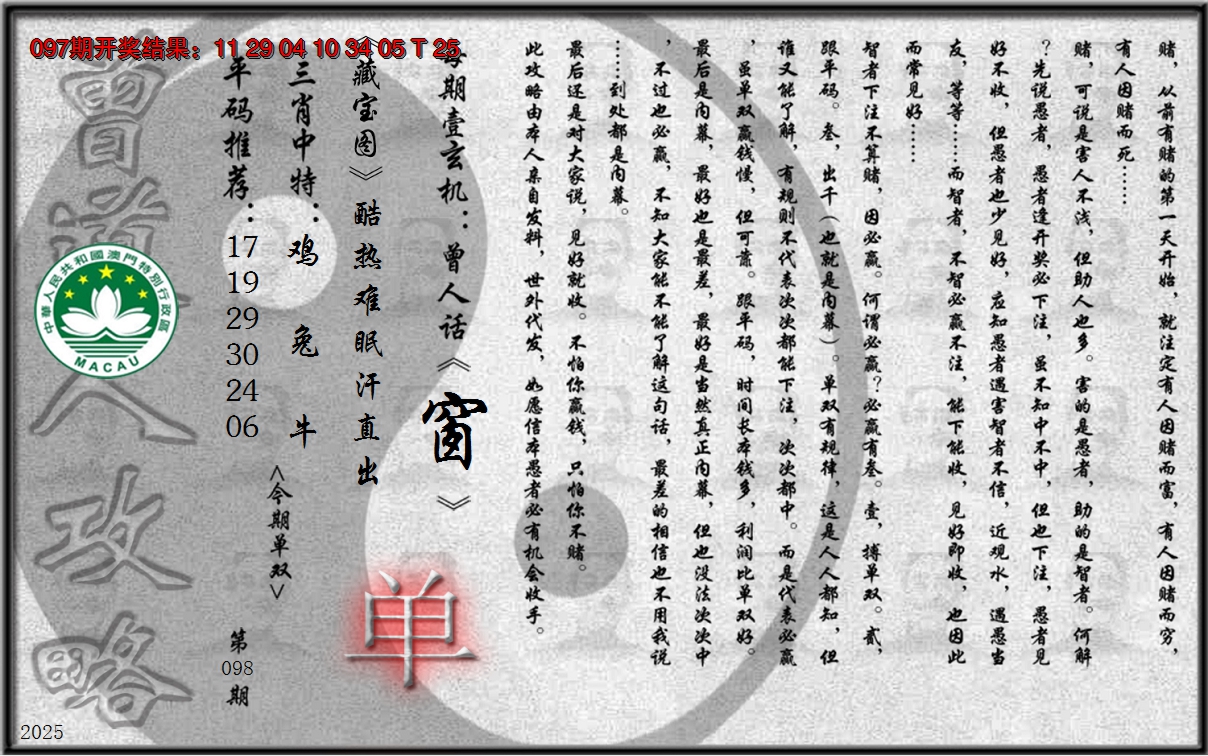 097期开奖结果：11 29 04 10 34 05 T 25
赌，从前有赌的第一天开始，就注定有人因赌而富，有人因赌而穷，
有人因赌而死……
赌，可说是害人不浅，但助人也多。害的是愚者，助的是智者。何解
？先说愚者，愚者逢开奖必下注，虽不知中不中，但也下注，愚者见
好不收，但愚者也少见好，应知愚者遇害智者不信，近观水，遇愚当
友，等等……而智者，不智必赢不注，能下能收，见好即收，也因此
而常见好……
智者下注不算赌，因必赢。何谓必赢？必赢有叁。壹，搏单双。贰，
跟平码。叁，出千（也就是内幕）。单双有规律，这是人人都知，但
谁又能了解，有规则不代表次次都能下注，次次都中。而是代表必赢
，虽单双赢钱慢，但可靠。跟平码，时间长本钱多，利润比单双好。
最后是内幕，最好也是最差，最好是当然真正内幕，但也没法次次中
，不过也必赢，不知大家能不能了解这句话，最差的相信也不用我说
……到处都是内幕。
最后还是对大家说，见好就收。不怕你赢钱，只怕你不赌。
此攻略由本人亲自发料，世外代发，如愿信本愚者必有机会收手。
每期壹玄机：曾人话《窗》
《藏宝图》酷热难眠汗直出
单
三肖中特：鸡 兔 牛
<今期单双>
平码推荐：17 19 29 30 24 06
第098期
曾道人攻略
中華人民共和國澳門特別行政區
MACAU
2025